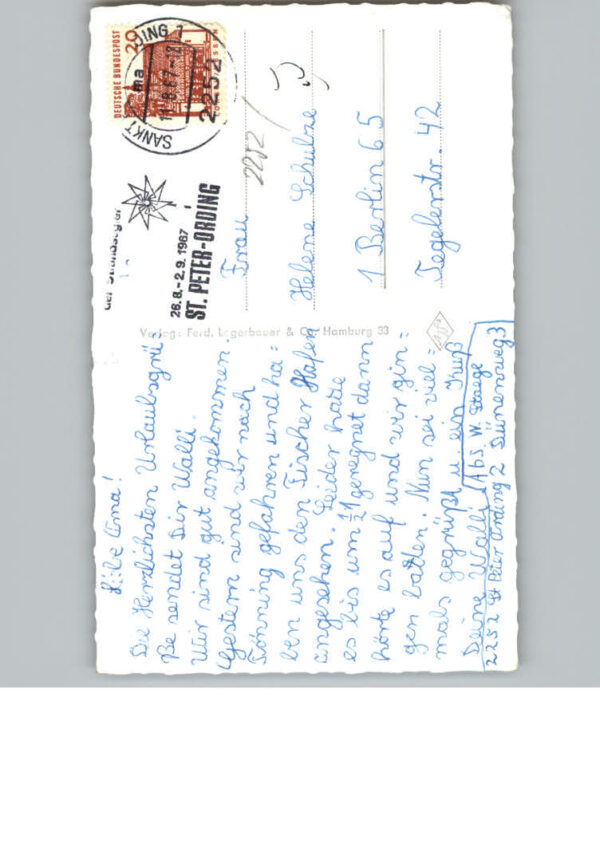 Liebe Oma!
Die Herzlichsten Urlaubsgrü-
ße sendet Dir Walli.
Wir sind gut angekommen.
Gestern sind wir nach
Tönning gefahren und ha=
ben uns den Fischer Hafen
angesehen. Leider hatte
es bis um 11 geregnet dann
hörte es auf und wir gin=
gen batten. Nun sei viel=
mals gegrüßt u. ein Kuß
Deine Walli
Abs W. Staege
2252 St Peter Ording 2 Dünenweg 3
Verlag: Ferd. Lagerbauer & Co, Hamburg 33
DEUTSCHE BUNDESPOST
20
SANKT
DING 1
11.8.67-18
2252
26.8.-2.9.1967
ST. PETER-ORDING
2252
Frau
Helene Schulze
1 Berlin 65
Tegelerstr. 42